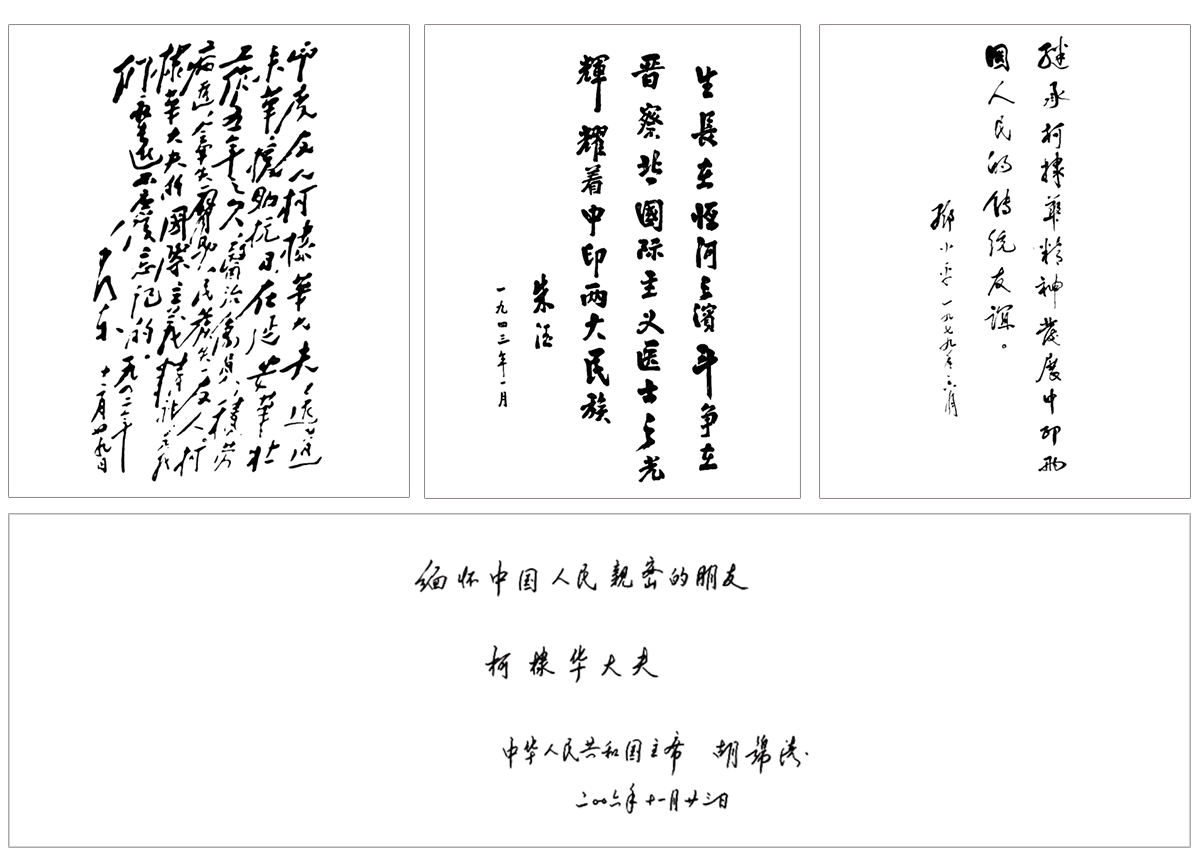 印度友人柯棣華大夫远道
来華,援助抗日,在延安華北
工作五年之久,医治伤員,積劳
病逝,全軍失一臂助,民族失一友人。柯
棣華大夫的國際主義精神,是我
们永远不應該忘记的。
毛泽东
一九四二年
十二月廿九日
生長在恆河之濱斗争在
晋察冀國际主义医士之光
輝耀着中印两大民族
朱德
一九四三年一月
繼承柯棣華精神發展中印两
國人民的傳统友誼。
鄧小平 一九七九年
缅怀中国人民親密的朋友
柯棣华大夫
中华人民共和国主席 胡锦涛
二〇〇六年十一月廿三日